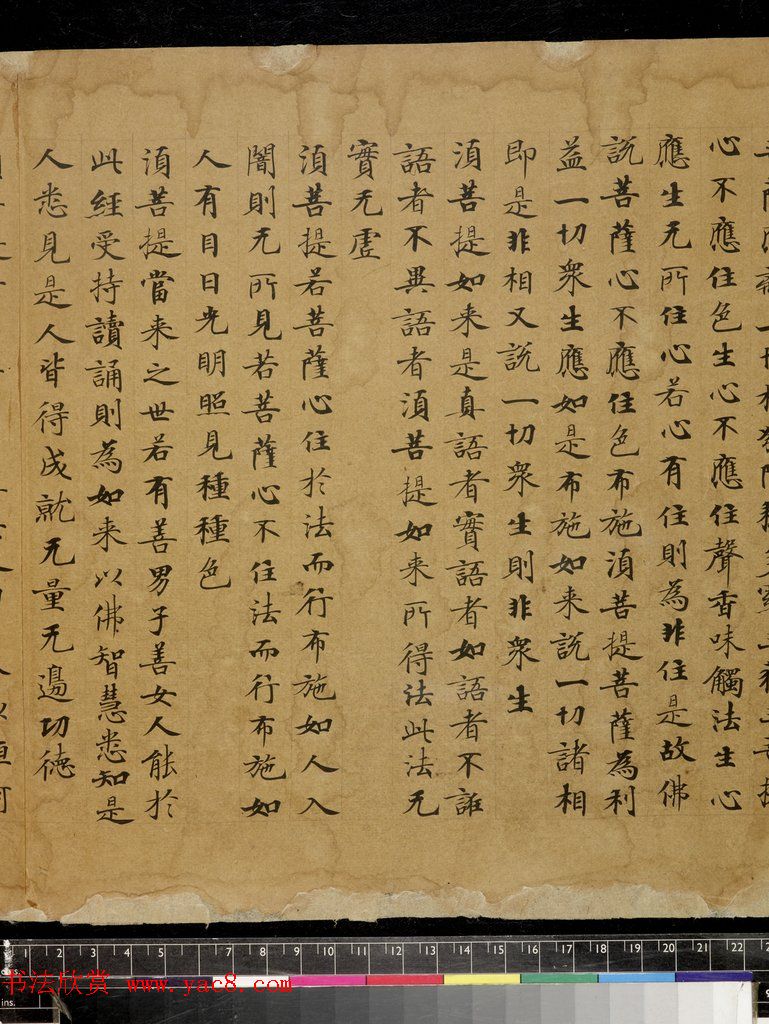 心不應住色生心不應住聲香味觸法生心
應生无所住心若心有住則為非住是故佛
說菩薩心不應住色布施湏菩提菩薩為利
益一切衆生應如是布施如来說一切諸相
即是非相又說一切衆生則非衆生
湏菩提如来是真語者實語者如語者不誑
語者不異語者湏菩提如来所得法此法无
實无虛
湏菩提若菩薩心住於法而行布施如人入
闇則无所見若菩薩心不住法而行布施如
人有目日光明照見種種色
湏菩提當来之世若有善男子善女人能於
此經受持讀誦則為如来以佛智慧悉知是
人悉見是人皆得成就无量无邊功德
1 2 3 4 5 7 8 9 10 11 12 13 14 15 16 17 18 19 20 21 22
书法欣赏 www.yac8.com
ins.